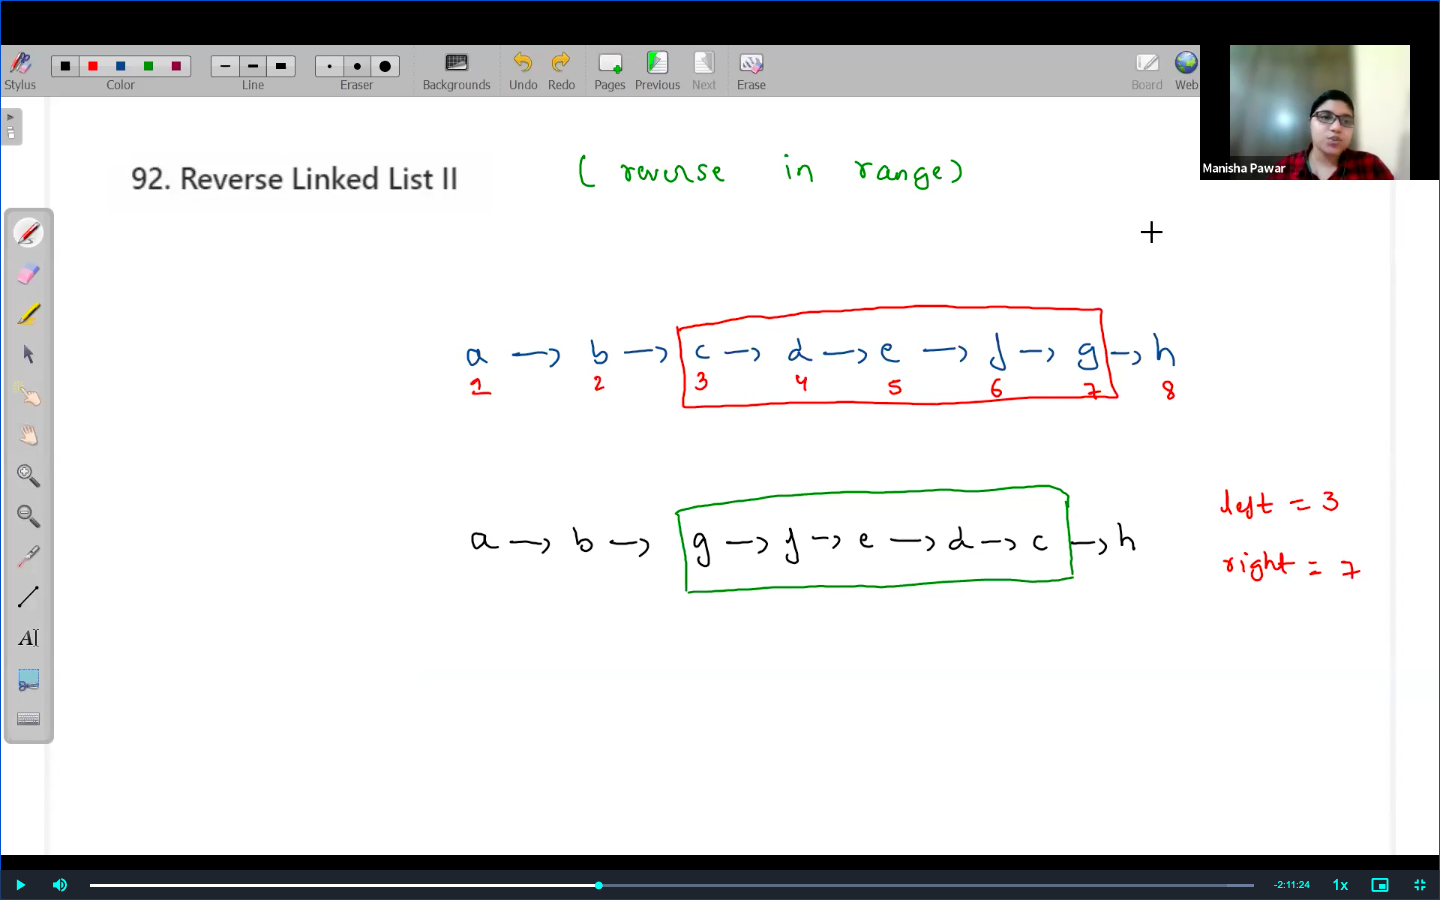 Stylus Color Line Eraser Backgrounds Undo Redo Pages Previous Next Erase Board Web
Manisha Pawar
92. Reverse Linked List II (reverse in range)
a → b → c → d → e → f → g → h
1 2 3 4 5 6 7 8
left = 3
a → b → g → f → e → d → c → h
right = 7
AI
-2:11:24 1x